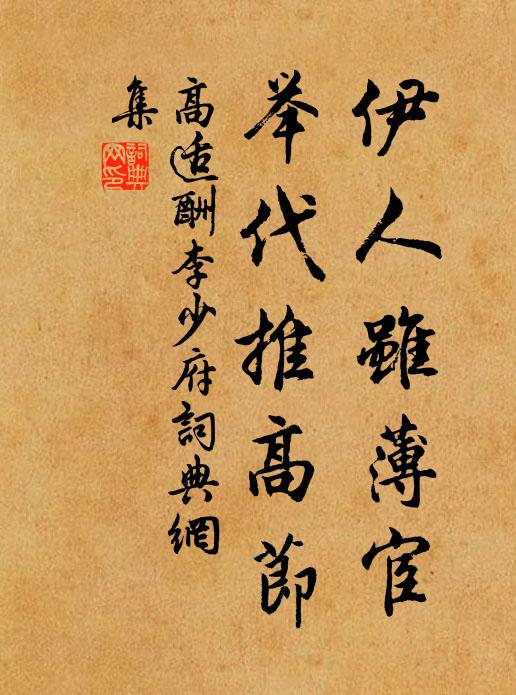 伊人雖薄宦
举代推高節
高适酬李少府詞典網
集
詞典网印